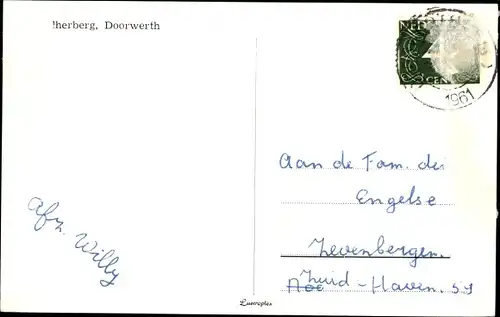 !herberg, Doorwerth
NED
CENT
1961
Aan de Fam. de
Engelse
Zevenbergen.
Zuid-Haven. 59
Afz. Willy
Luxereplex